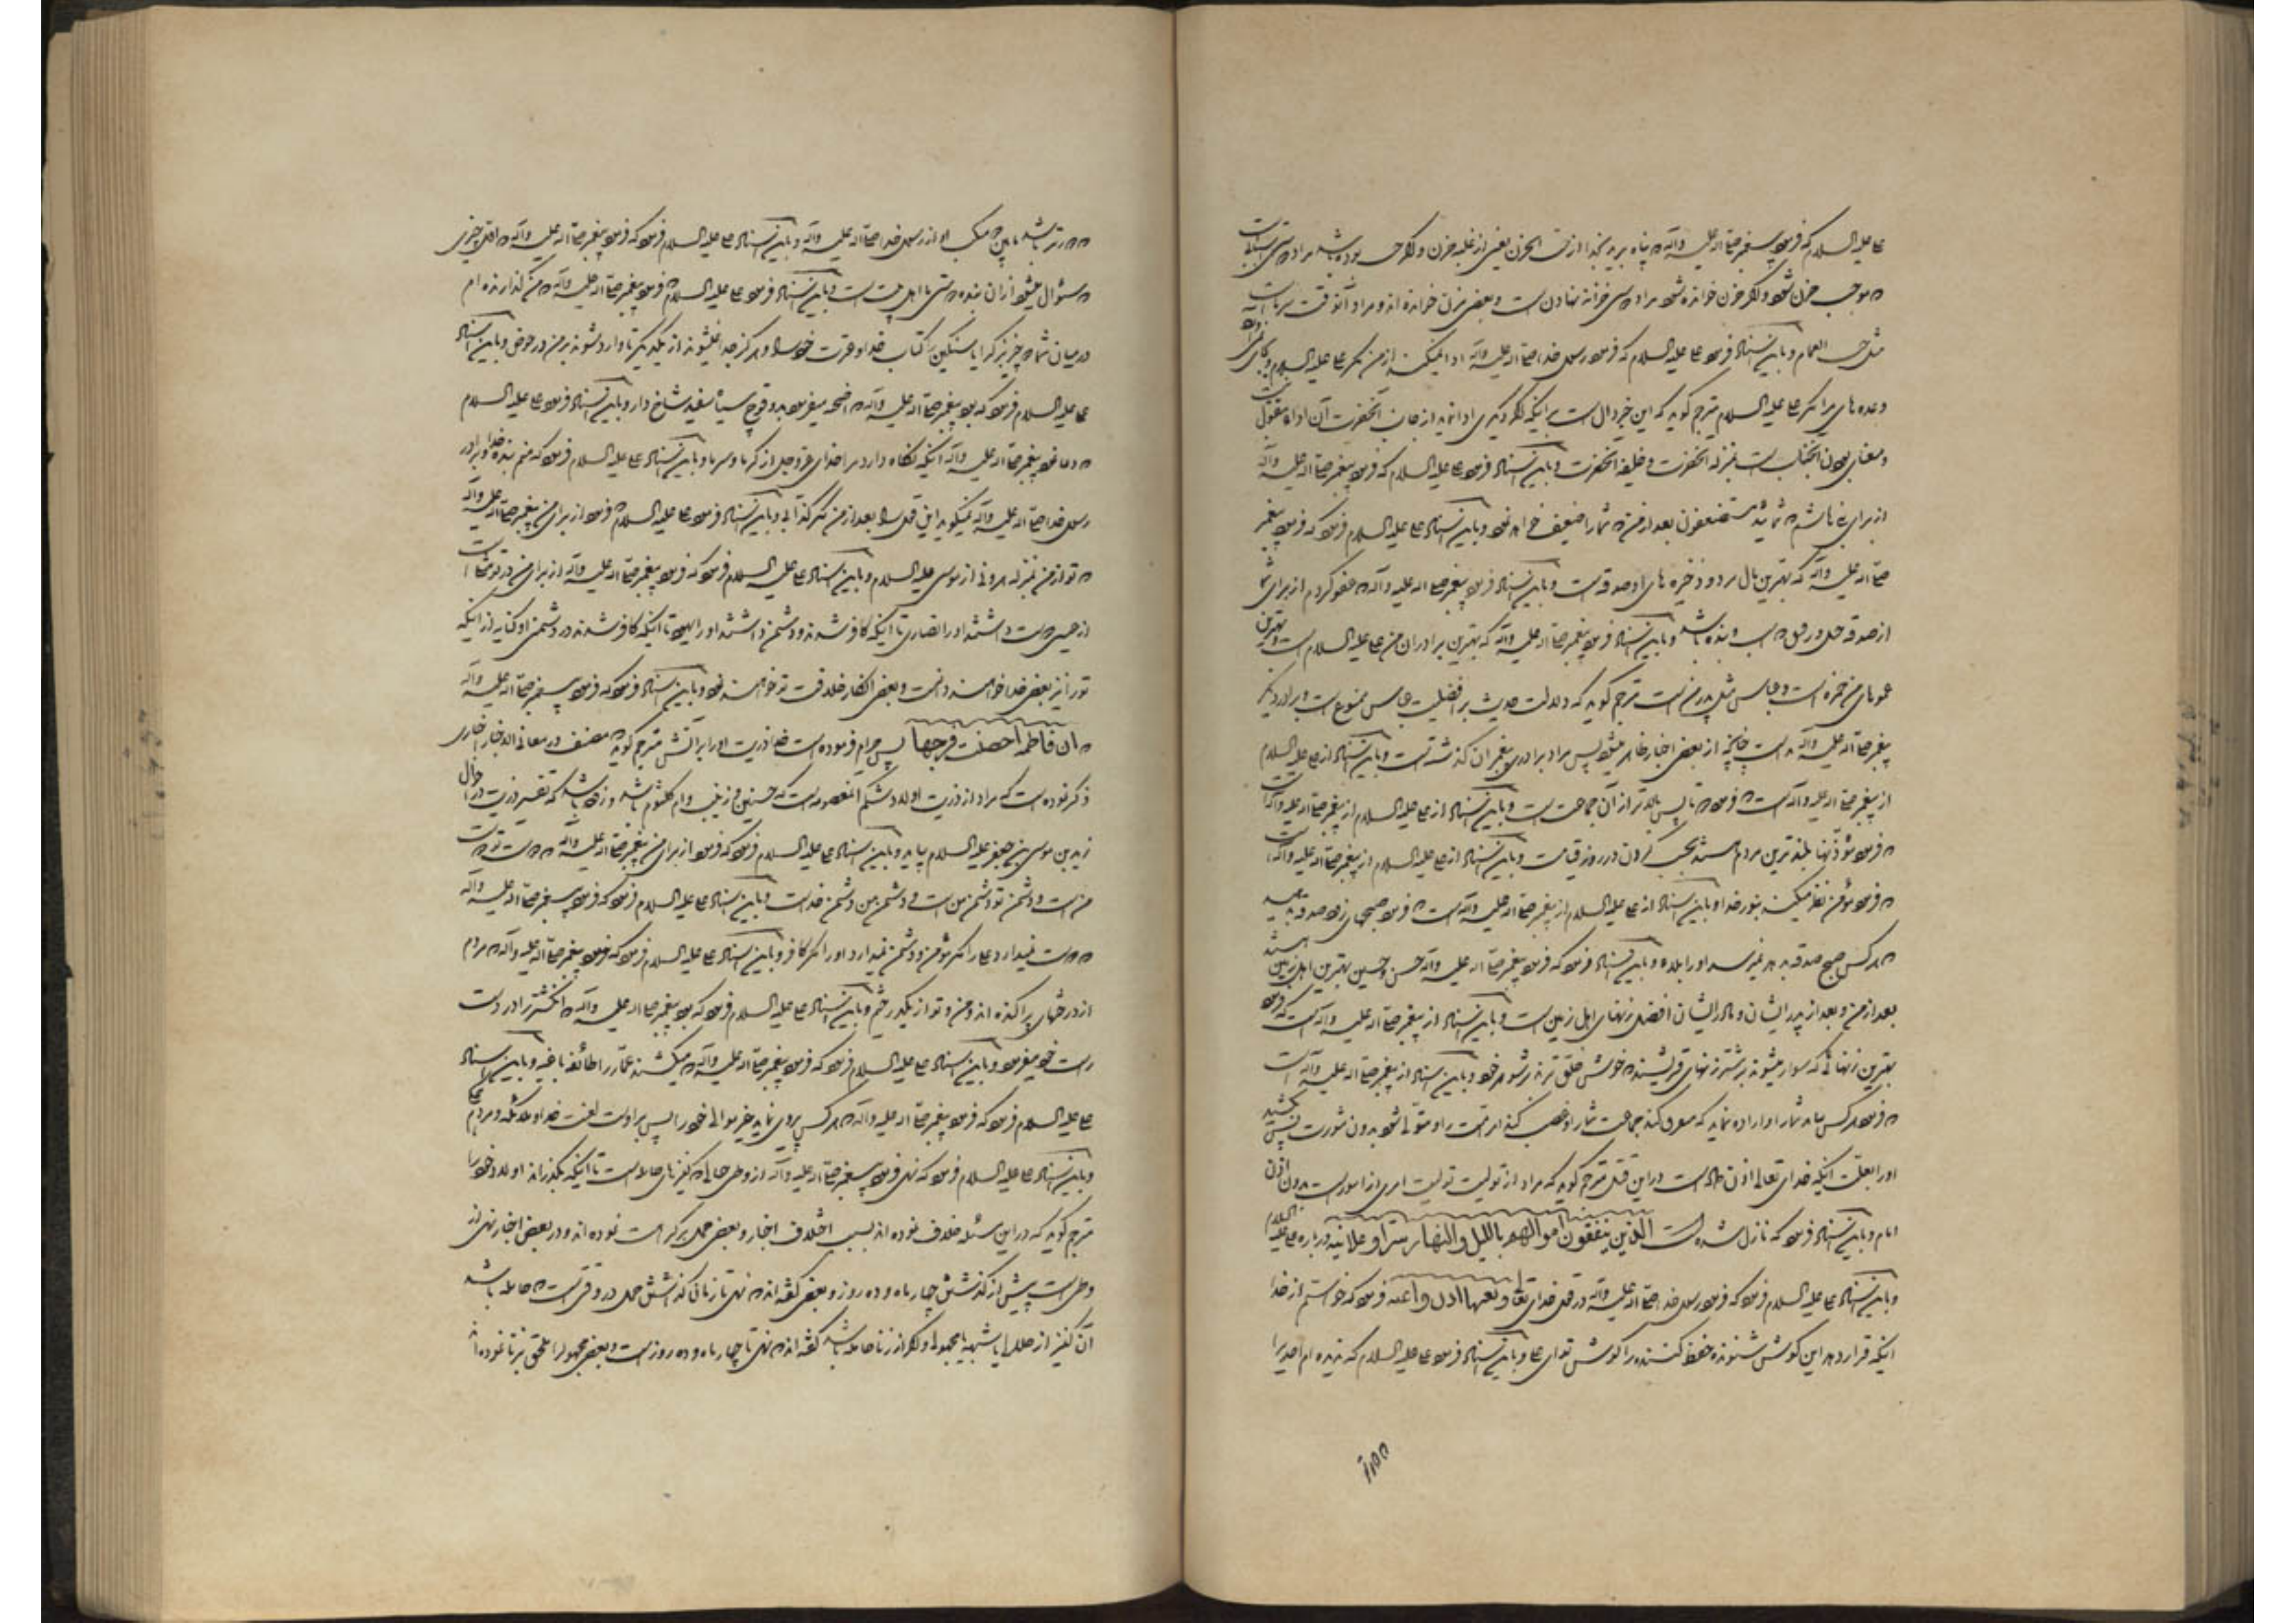 علی علیه السلام که فرمود پیغمبر صلی الله علیه وآله پناه برید بخدا از حب الحزن یعنی از غلبه حزن و اگر حب بوده باشد مراد
موجب حزن شود و اگر حزن خوانده شود مراد خزانه نهادن است و بعضی خوانده اند و مراد آنوقت
مثل حب الغمام و باین اسناد فرمود علی علیه السلام که فرمود رسول خدا صلی الله علیه وآله ادا نمیکند از من مگر علی علیه السلام
وعده های مرا مگر علی علیه السلام مترجم گوید که این خبر دال است بر اینکه دیگری ادا ننماید از جانب آنحضرت
آنجناب است بمنزله آنحضرت و خلیفه آنحضرت و باین اسناد فرمود علی علیه السلام که فرمود پیغمبر صلی الله علیه وآله
از برای بنی هاشم شمائید مستضعفون بعد از من شما را ضعیف خواهند نمود و باین اسناد علی علیه السلام فرمود که فرمود پیغمبر
صلی الله علیه وآله که بهترین مال مرد و ذخیره های او صدقه است و باین اسناد فرمود پیغمبر صلی الله علیه وآله عفو کردم از برای شما
از صدقه و باین اسناد فرمود پیغمبر صلی الله علیه وآله که بهترین برادران من علی علیه السلام است و بهترین
عموهای من حمزه است و عباس مثل پدر من است مترجم گوید که دلالت حدیث بر افضلیت عباس ممنوع است
پیغمبر صلی الله علیه وآله است چنانچه از بعضی اخبار ظاهر میشود پس مراد برادری پیغمبران گذشته است و باین اسناد از علی علیه السلام
از پیغمبر صلی الله علیه وآله است فرمود بالاتر از آن جماعت است و باین اسناد از علی علیه السلام از پیغمبر صلی الله علیه وآله است
فرمود مؤذنها بلندترین مردم هستند بحسب گردن در روز قیامت و باین اسناد از علی علیه السلام از پیغمبر صلی الله علیه وآله است
فرمود مؤمن نظر میکند بنور خدا و باین اسناد از علی علیه السلام از پیغمبر صلی الله علیه وآله است فرمود صبحهای زود صدقه بدهید
هر کس صبح صدقه بدهد نمیرسد او را بلاء و باین اسناد فرمود که فرمود پیغمبر صلی الله علیه وآله حسن و حسین بهترین اهل زمین هستند
بعد از من و بعد از پدر ایشان و مادر ایشان افضل زنهای اهل زمین است و باین اسناد از پیغمبر صلی الله علیه وآله است که فرمود
بهترین زنهائی که سوار میشوند بر شتر زنهای قریشند و باین اسناد از پیغمبر صلی الله علیه وآله است
فرمود هر کس بیاید شما را و اراده نماید که متفرق کند جماعت شما را و غصب کند امر امت را و متولی شود بدون مشورت پس بکشید
او را بعلت اینکه خدای تعالی اذن داده است در این قتل مترجم گوید که مراد از تولیت تولیت امری از امور است بدون اذن
امام و باین اسناد فرمود که نازل شده است الذین ینفقون اموالهم باللیل والنهار سرا وعلانیه در باره علی علیه السلام
و باین اسناد علی علیه السلام فرمود که فرمود رسول خدا صلی الله علیه وآله در قول خدای تعالی وتعیها اذن واعیه فرمود که خواستم از خدا
اینکه قرار دهد این گوش شنونده حفظ کننده را گوش تو ای علی و باین اسناد فرمود علی علیه السلام که ندیده ام احدی را
باشد از رسول خدا صلی الله علیه وآله و باین اسناد علی علیه السلام فرمود که فرمود پیغمبر صلی الله علیه وآله اول چیزی
سؤال میشود از آن بنده دوستی ما اهل بیت است و باین اسناد فرمود علی علیه السلام فرمود پیغمبر صلی الله علیه وآله من گذارنده ام
در میان شما دو چیز بزرگ را یا سنگین را کتاب خدا و عترت خود را و هرگز جدا نمیشوند از یکدیگر تا وارد شوند بر من در حوض و باین اسناد
علی علیه السلام فرمود که بود پیغمبر صلی الله علیه وآله اضحیه میفرمود بدو قوچ سیاه سفید شاخ دار و باین اسناد فرمود علی علیه السلام
دعا نمود پیغمبر صلی الله علیه وآله اینکه نگاه دارد مرا خدای عز و جل از گرما و سرما و باین اسناد علی علیه السلام فرمود که منم بنده خدا و برادر
رسول خدا صلی الله علیه وآله نمیگوید این قول را بعد از من مگر کذابی و باین اسناد فرمود علی علیه السلام فرمود از برای من پیغمبر صلی الله علیه وآله
تو از من بمنزله هرونی از موسی علیه السلام و باین اسناد علی علیه السلام فرمود که فرمود پیغمبر صلی الله علیه وآله از برای من در تو
از عیسی دوست داشتند او را نصاری تا اینکه کافر شدند و دشمن داشتند او را یهود تا اینکه کافر شدند در دشمنی او کنایه از اینکه
تو را نیز بعضی خدا خواهند دانست و بعضی و باین اسناد فرمود که فرمود پیغمبر صلی الله علیه وآله
ان فاطمه احصنت فرجها پس حرام فرموده است خدا ذریت او را بر آتش مترجم گوید مصنف در معانی الاخبار اخباری
ذکر نموده است که مراد از ذریت اولاد شکم آنمعصومه است که حسنین و زینب و ام کلثوم باشد
زید بن موسی بن جعفر علیه السلام بیاید و باین اسناد علی علیه السلام فرمود که فرمود از برای من پیغمبر صلی الله علیه وآله دوست تو دوست
من است و دشمن تو دشمن من است و دشمن من دشمن خداست و باین اسناد علی علیه السلام فرمود که فرمود پیغمبر صلی الله علیه وآله
دوست نمیدارد علی را مگر مؤمن و دشمن نمیدارد او را مگر کافر و باین اسناد علی علیه السلام فرمود که فرمود پیغمبر صلی الله علیه وآله مردم
از درختهای پراکنده اند و من و تو از یکدرختیم و باین اسناد علی علیه السلام فرمود که بود پیغمبر صلی الله علیه وآله انگشتر را در دست
راست خود میفرمود و باین اسناد علی علیه السلام فرمود که فرمود پیغمبر صلی الله علیه وآله میکشند عمار را طائفه باغیه و باین اسناد
علی علیه السلام فرمود که فرمود پیغمبر صلی الله علیه وآله هر کس پیروی نماید غیر موالی خود را پس بر اوست لعنت خدا و ملائکه و مردم
و باین اسناد علی علیه السلام فرمود که نهی فرمود پیغمبر صلی الله علیه وآله از وطی کنیزهای حامله است تا اینکه بگذراند اولاد خود را
مترجم گوید که در این مسئله خلاف نموده اند بسبب اختلاف اخبار و بعضی حمل بر کراهت نموده اند و در بعضی اخبار نهی از
وطی است پیش از گذشتن چهار ماه و ده روز و بعضی گفته اند نهی تا زمانی گذاشتن حمل در وقتی است حامله باشد
آن کنیز از حلال یا شبهه یا مجهول و اگر از زنا حامله باشد گفته اند نهی تا چهار ماه و ده روز است و بعضی مجهول را ملحق بزنا نموده اند